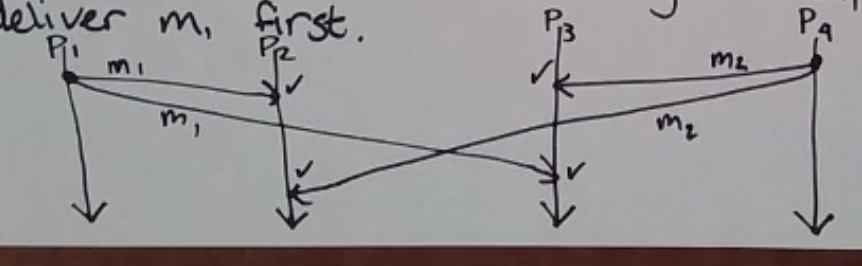 deliver m₁ first.
P₁ P₂ P₃ P₄
m₁ ✓ ✓ m₂
m₁ m₂
✓ ✓